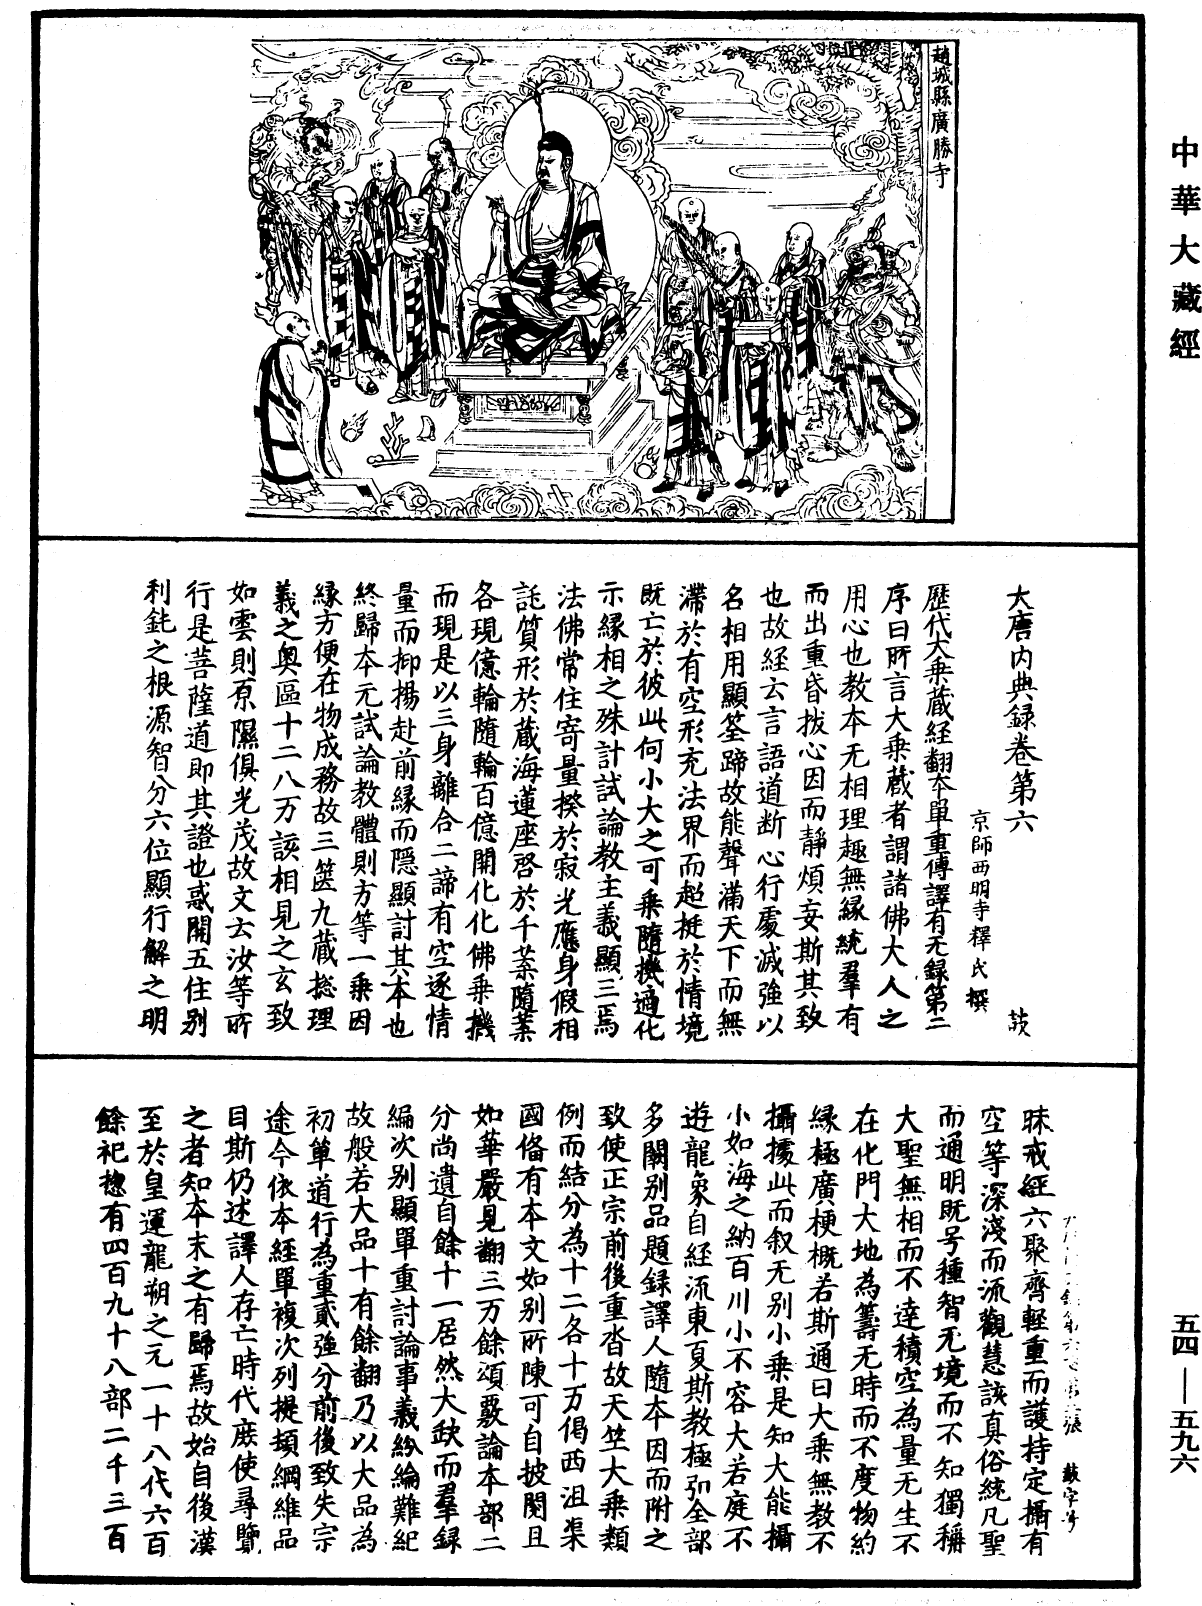 中華大藏經
趙城縣廣勝寺
大唐內典錄卷第六 鼓
京師西明寺釋氏撰
歷代大乘藏經翻本單重傳譯有无錄第二
序曰所言大乘藏者謂諸佛大人之
用心也教本无相理趣無緣統羣有
而出重昏拔心因而靜煩妄斯其致
也故経云言語道断心行處滅強以
名相用顯筌蹄故能聲滿天下而無
滯於有空形充法界而超挺於情境
既亡於彼此何小大之可乗隨機通化
示緣相之殊計試論教主義顯三焉
法佛常住寄量揆於寂光應身假相
託質形於蔵海蓮座啓於千葉隨葉
各現億輪隨輪百億開化化佛乗機
而現是以三身離合二諦有空逐情
量而抑揚赴前緣而隱顯討其本也
終歸本元試論教體則方等一乗因
緣方便在物成務故三篋九蔵捴理
義之奥區十二八万該相見之玄致
如雲則原隰俱光茂故文云汝等所
行是菩薩道即其證也惑開五住別
利鈍之根源智分六位顯行解之明
昧戒經六聚齊輕重而護持定攝有
空等深淺而流觀慧該真俗統凡聖
而通明既号種智无境而不知獨稱
大聖無相而不達積空為量无生不
在化門大地為籌无時而不度物約
緣極廣梗概若斯通曰大乗無教不
攝據此而叙无別小乗是知大能攝
小如海之納百川小不容大若庭不
遊龍象自經流東夏斯教極弘全部
多闕別品題録譯人隨本因而附之
致使正宗前後重沓故天竺大乗類
例而結分為十二各十万偈西沮渠
國俻有本文如別所陳可自披閱且
如華嚴見翻三万餘頌覈論本部二
分尚遺自餘十一居然大缺而羣録
編次別顯單重討論事義紛綸難紀
故般若大品十有餘翻乃以大品為
初單道行為重貳強分前後致失宗
途今依本經單複次列提頡綱維品
目斯仍述譯人存亡時代庶使尋覽
之者知本末之有歸焉故始自後漢
至於皇運龍朔之元一十八代六百
餘祀捴有四百九十八部二千三百
五四—五九六